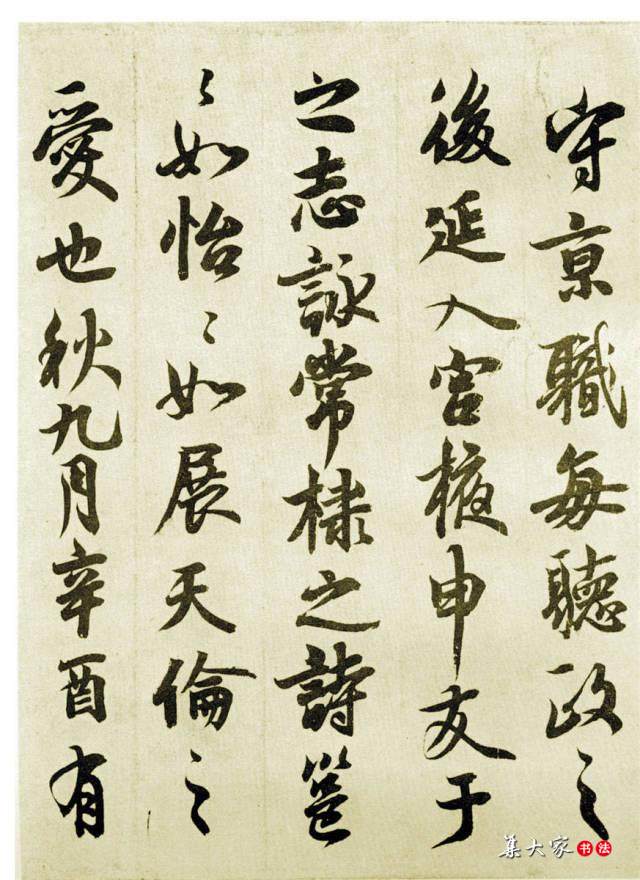 守京職每聽政之
後延入宮掖申友于
之志詠常棣之詩邕
〻如怡〻如展天倫之
愛也秋九月辛酉有
集大家书法